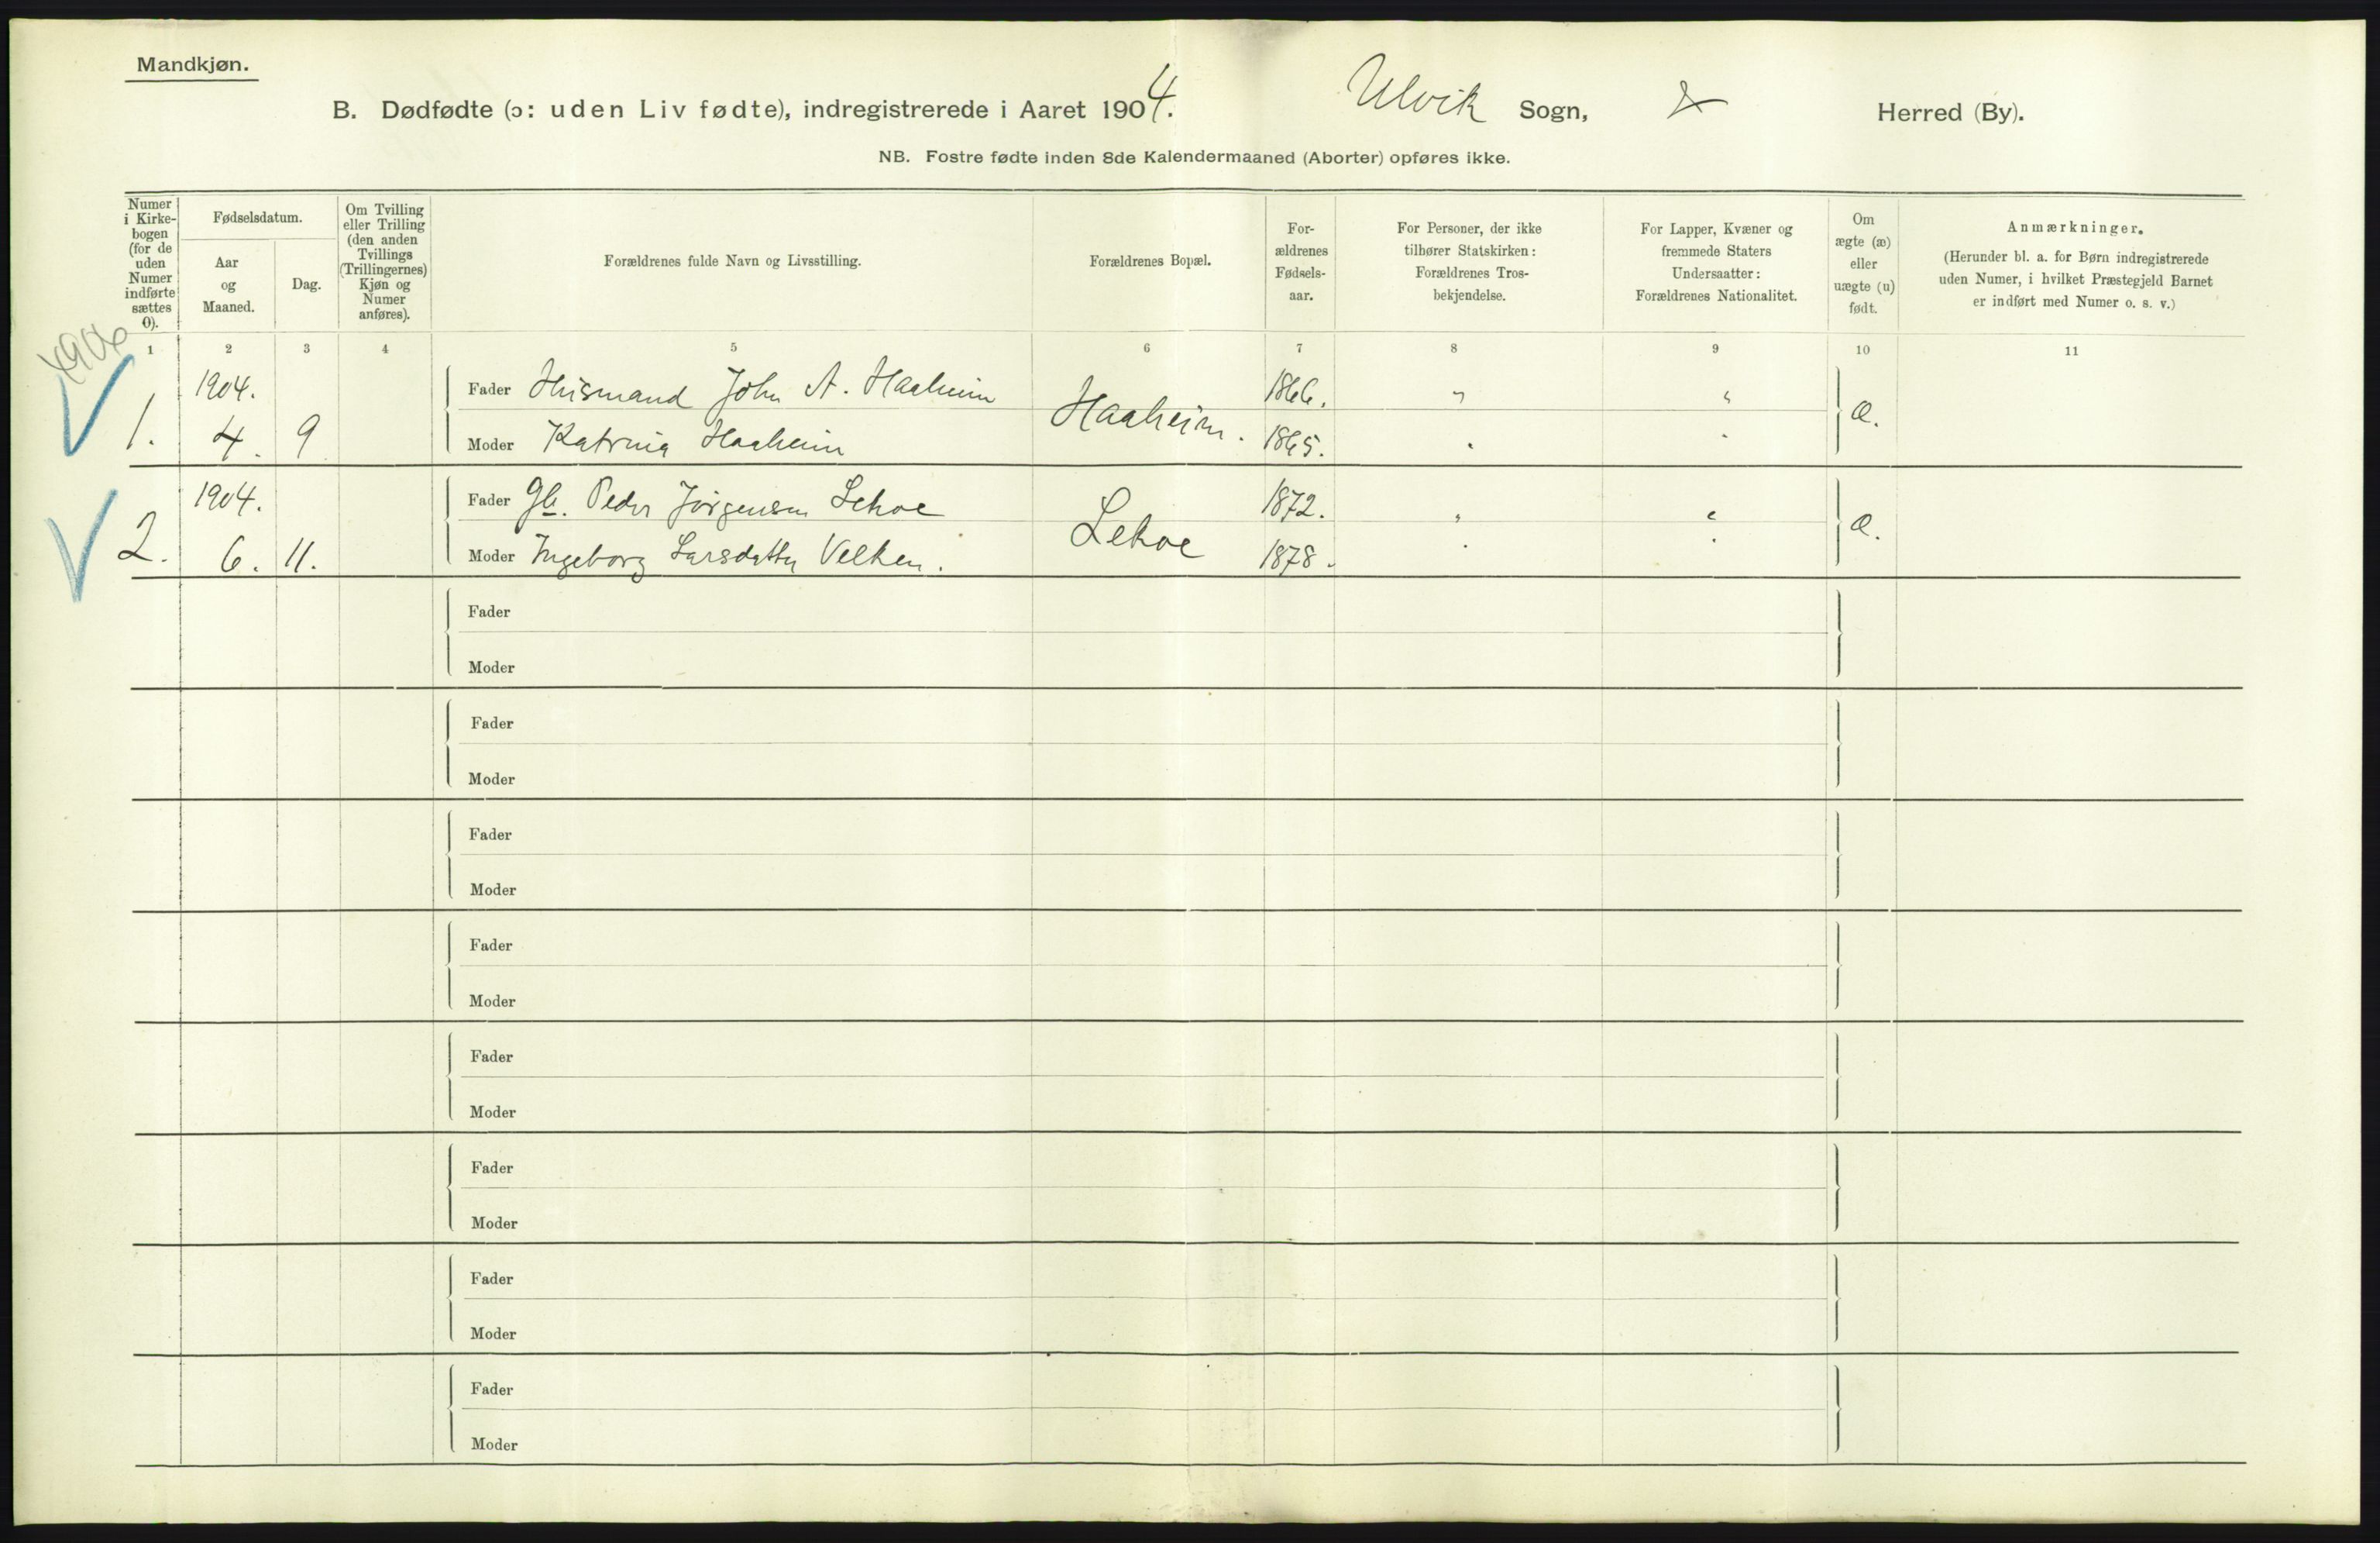 Mandkjøn.
B. Dødfødte (ɔ: uden Liv fødte), indregistrerede i Aaret 1904. Ulvik Sogn, Herred (By).
NB. Fostre fødte inden 8de Kalendermaaned (Aborter) opføres ikke.
Numer
i Kirke-
bogen
(for de
uden
Numer
indførte
sættes
0).
Fødselsdatum.
Aar
og
Maaned.
Dag.
Om Tvilling
eller Trilling
(den anden
Tvillings
(Trillingernes)
Kjøn og
Numer
anføres).
Forældrenes fulde Navn og Livsstilling.
Forældrenes Bopæl.
For-
ældrenes
Fødsels-
aar.
For Personer, der ikke
tilhører Statskirken:
Forældrenes Tros-
bekjendelse.
For Lapper, Kvæner og
fremmede Staters
Undersaatter:
Forældrenes Nationalitet.
Om
ægte (æ)
eller
uægte (u)
født.
Anmærkninger.
(Herunder bl. a. for Børn indregistrerede
uden Numer, i hvilket Præstegjeld Barnet
er indført med Numer o. s. v.)
1 2 3 4 5 6 7 8 9 10 11
1904. Fader Husmand John A. Haaheim 1866. " "
1. 4. 9 Moder Katrina Haaheim Haaheim. 1865. " " æ.
1904. Fader Gb. Peder Jørgensen Lekve 1872. " "
2. 6. 11. Moder Ingeborg Larsdatter Velken. Lekve 1878. " " æ.
Fader
Moder
Fader
Moder
Fader
Moder
Fader
Moder
Fader
Moder
Fader
Moder
Fader
Moder
Fader
Moder